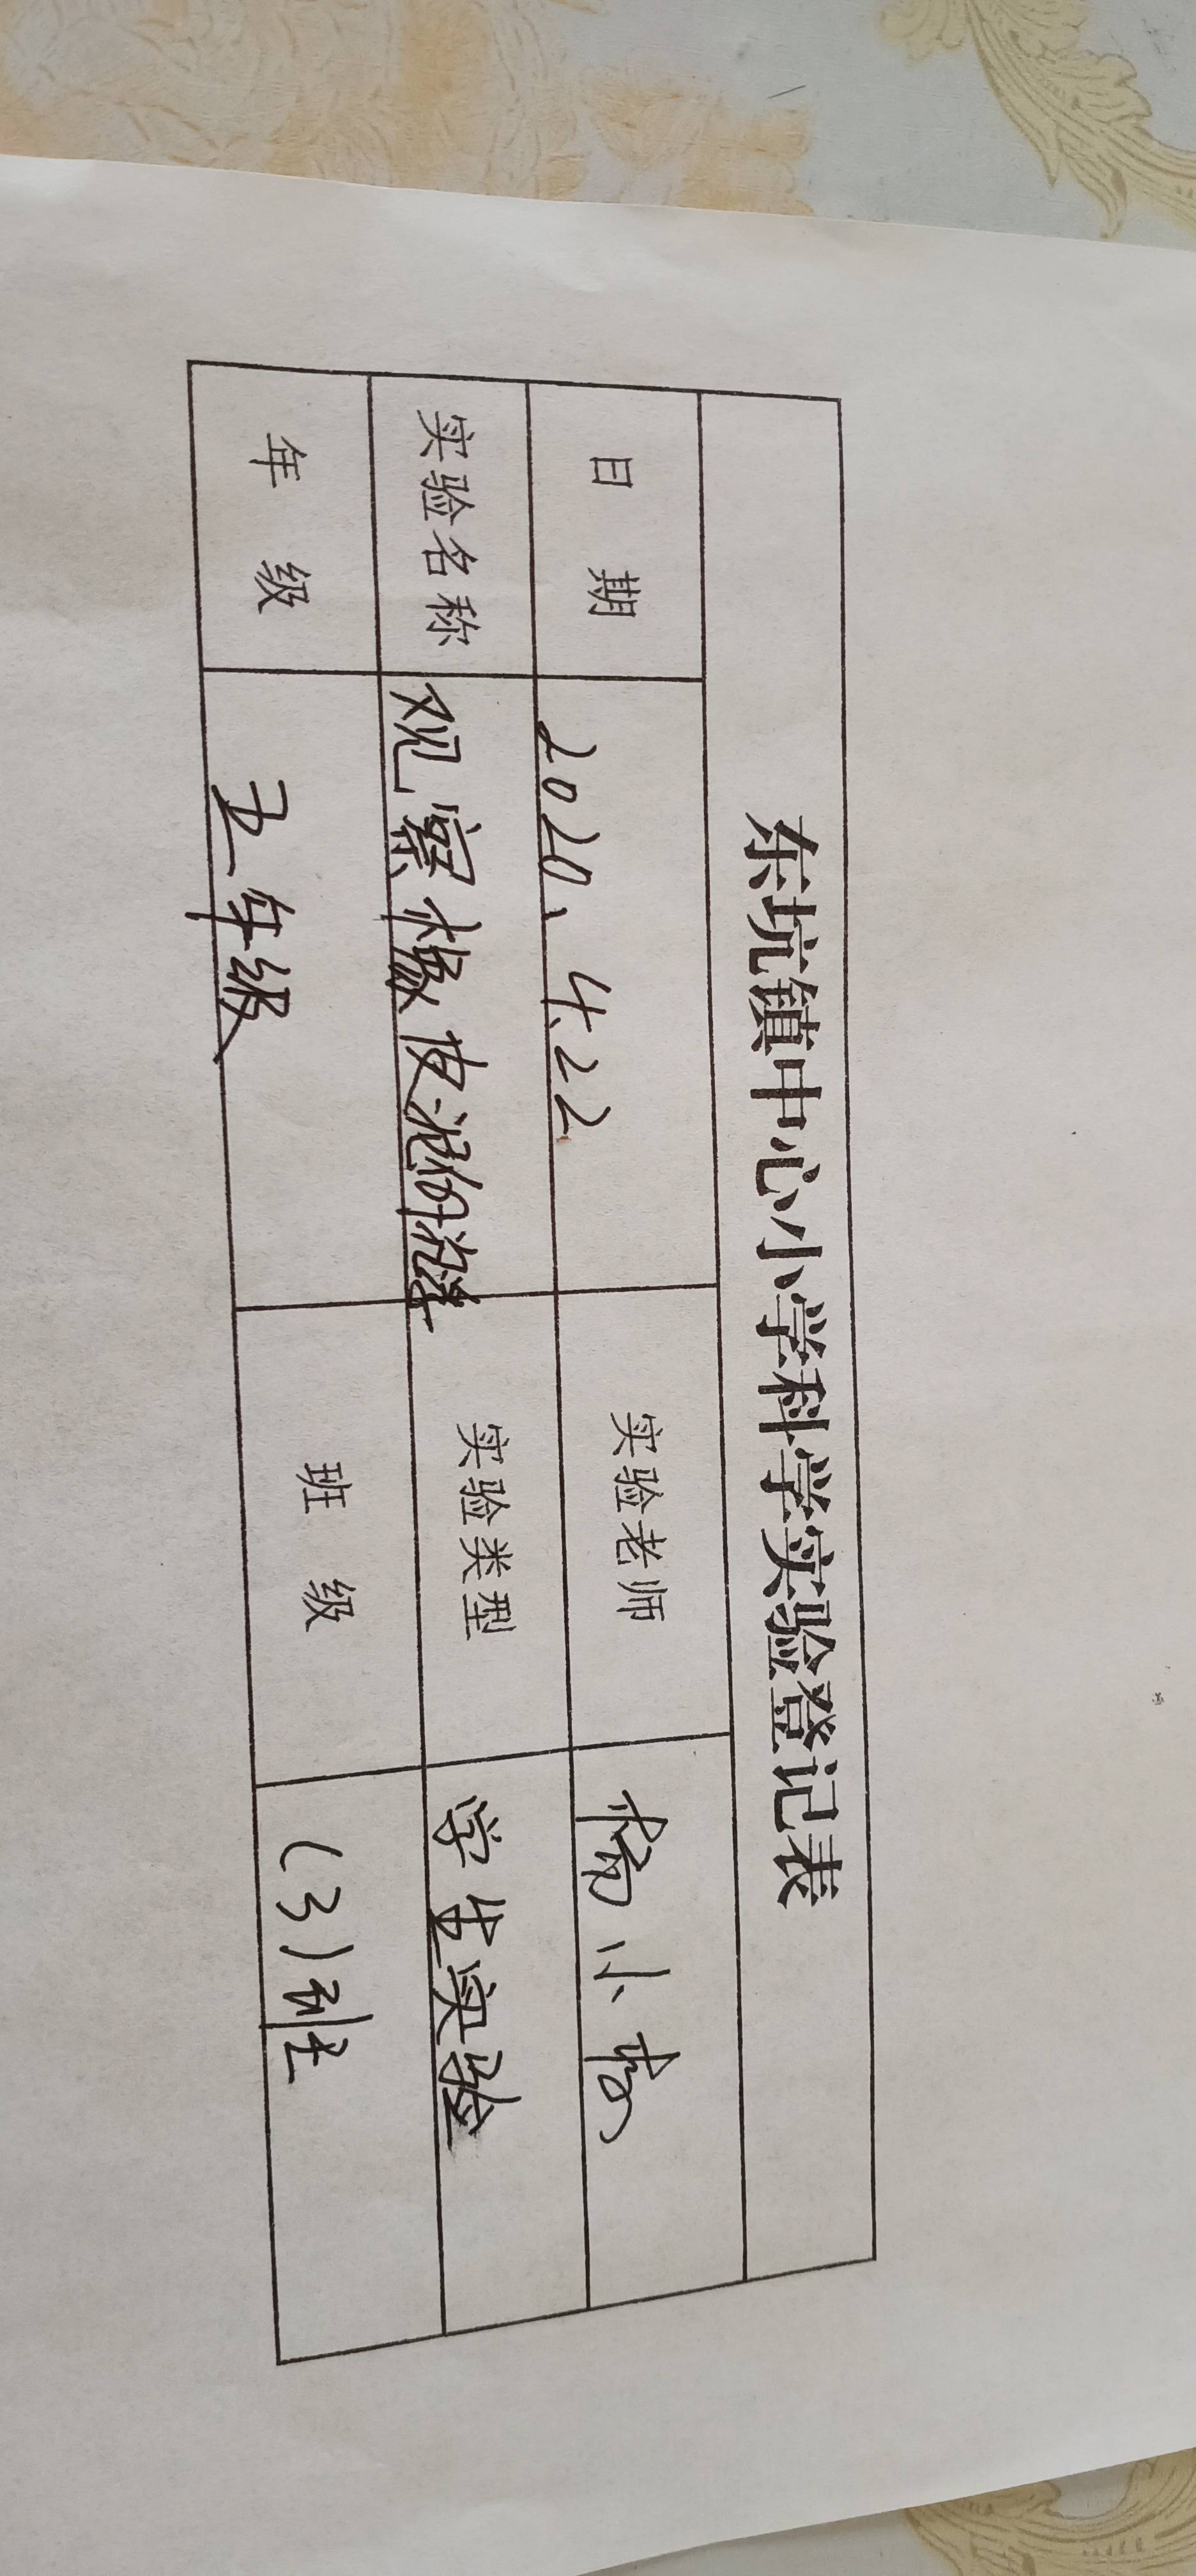 东坑镇中心小学科学实验登记表
日 期 2020、4.22 实验老师 小梅
实验名称 观察橡皮泥的沉浮 实验类型 学生实验
年 级 五年级 班 级 (3)班